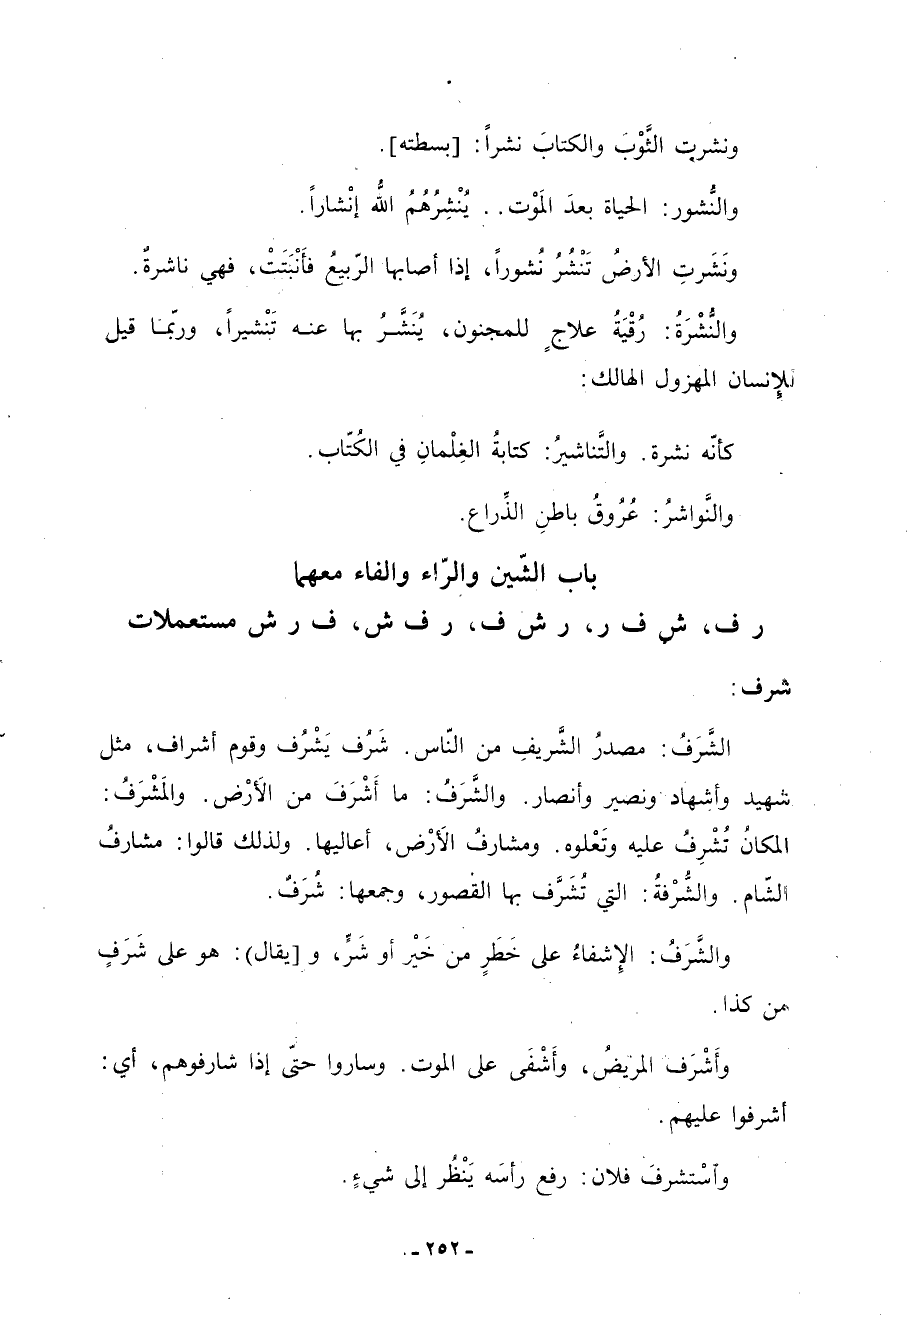 ونشرت الثَّوْبَ والكتابَ نشراً: [بسطته].
والنُّشور: الحياة بعدَ المَوْت.. يُنْشِرُهُمُ اللّٰهُ إنْشاراً.
ونَشَرتِ الأرضُ تَنْشُرُ نُشوراً، إذا أصابها الرّبيعُ فأَنْبَتَتْ، فهي ناشرةٌ.
والنُّشْرَةُ: رُقْيَةُ علاجٍ للمجنون، يُنَشَّرُ بها عنه تَنْشيراً، وربّما قيل
للإِنسان المهزول الهالك:
كأنّه نشرة. والتَّناشيرُ: كتابةُ الغِلْمانِ في الكُتّاب.
والنَّواشرُ: عُرُوقُ باطنِ الذِّراع.
باب الشّين والرّاء والفاء معهما
ر ف، ش ف ر، ر ش ف، ر ف ش، ف ر ش مستعملات
شرف:
الشَّرَفُ: مصدرُ الشَّريفِ من النّاس. شَرُف يَشْرُف وقوم أشراف، مثل
شهيد وأشهاد ونصير وأنصار. والشَّرَفُ: ما أَشْرَفَ من الأَرْض. والمَشْرَفُ:
المكانُ تُشْرِفُ عليه وتَعْلوه. ومشارفُ الأَرْض، أعاليها. ولذلك قالوا: مشارفُ
الشّام. والشُّرْفةُ: التي تُشَرَّف بها القصور، وجمعها: شُرَفٌ.
والشَّرَفُ: الإشفاءُ على خَطَرٍ من خَيْر أو شَرٍّ، و [يقال): هو على شَرَفٍ
من كذا.
وأَشْرَف المريضُ، وأَشْفَى على الموت. وساروا حتّى إذا شارفوهم، أي:
أشرفوا عليهم.
وٱسْتشرفَ فلان: رفع رأسَه يَنْظُر إلى شيءٍ.
ـ ٢٥٢ ـ